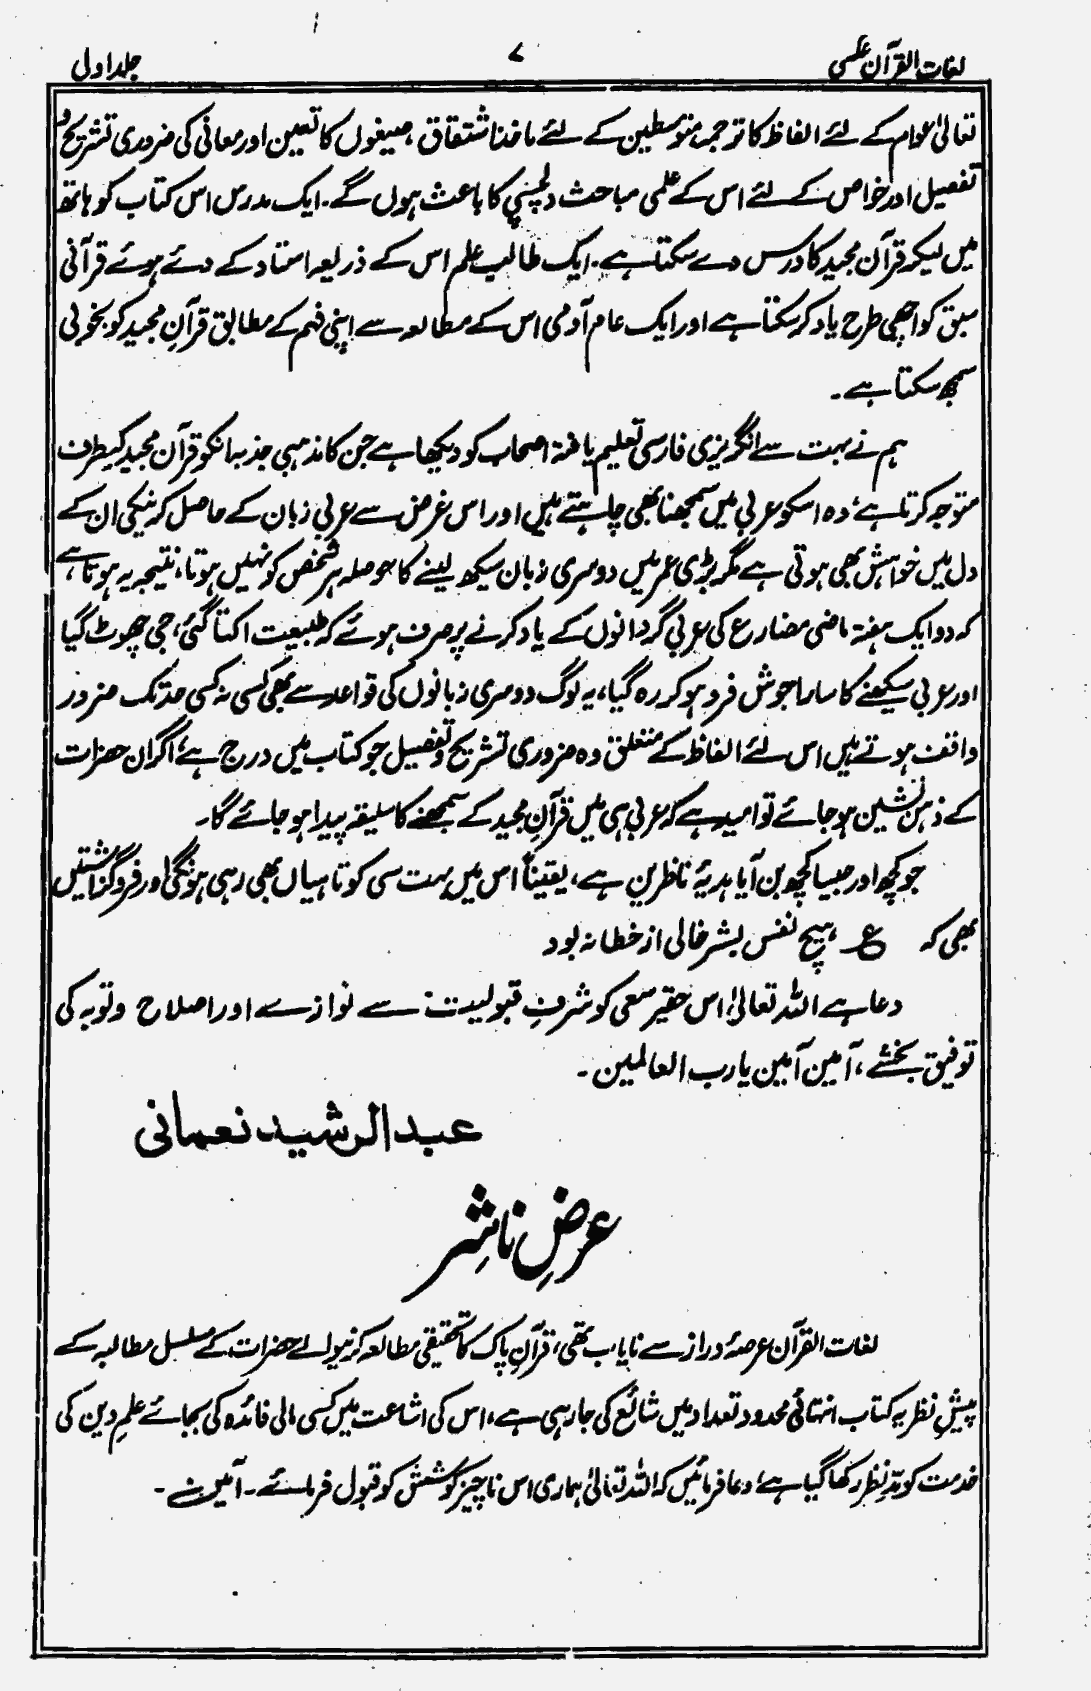 لغات القرآن عکسی
۷
جلد اول
تعالیٰ عوام کے لئے الفاظ کا ترجمہ متوسطین کے لئے ماخذ اشتقاق، صیغوں کا تعین اور معانی کی ضروری تشریح و
تفصیل اور خواص کے لئے اس کے علمی مباحث دلچسپی کا باعث ہوں گے۔ ایک مدرس اس کتاب کو ہاتھ
میں لیکر قرآن مجید کا درس دے سکتا ہے۔ ایک طالب علم اس کے ذریعہ استاد کے دئے ہوئے قرآنی
سبق کو اچھی طرح یاد کر سکتا ہے اور ایک عام آدمی اس کے مطالعہ سے اپنی فہم کے مطابق قرآنِ مجید کو بخوبی
سمجھ سکتا ہے۔
ہم نے بہت سے انگریزی فارسی تعلیم یافتہ اصحاب کو دیکھا ہے جن کا مذہبی جذبہ انکو قرآن مجید کیطرف
متوجہ کرتا ہے، وہ اسکو عربی میں سمجھنا بھی چاہتے ہیں اور اس غرض سے عربی زبان کے حاصل کرنیکی ان کے
دل میں خواہش بھی ہوتی ہے مگر بڑی عمر میں دوسری زبان سیکھ لینے کا حوصلہ ہر شخص کو نہیں ہوتا، نتیجہ یہ ہوتا ہے،
کہ دو ایک ہفتہ ماضی مضارع کی عربی گردانوں کے یاد کرنے پر صرف ہوئے کہ طبیعت اکتا گئی، جی چھوٹ گیا
اور عربی سیکھنے کا سارا جوش فرد ہو کر رہ گیا، یہ لوگ دوسری زبانوں کی قواعد سے بھی کسی نہ کسی حد تک ضرور
واقف ہوتے ہیں اس لئے الفاظ کے متعلق وہ ضروری تشریح و تفصیل جو کتاب میں درج ہے، اگر ان حضرات
کے ذہن نشین ہو جائے تو امید ہے کہ عربی ہی میں قرآنِ مجید کے سمجھنے کا سلیقہ پیدا ہو جائے گا۔
جو کچھ اور جیسا کچھ بن آیا ہدیۂ ناظرین ہے، یقیناً اس میں بہت سی کوتاہیاں بھی رہی ہونگی اور فروگذاشتیں
بھی کہ ع ہیچ نفس بشر خالی از خطا نہ بود
دعا ہے اللہ تعالیٰ اس حقیر سعی کو شرفِ قبولیت سے نوازے اور اصلاح و توبہ کی
توفیق بخشے، آمین آمین یا رب العالمین۔
عبد الرشید نعمانی
عرضِ ناشِر
لغات القرآن عرصۂ دراز سے نایاب تھی، قرآنِ پاک کا تحقیقی مطالعہ کرنیوالے حضرات کے مسلسل مطالبہ کے
پیشِ نظر یہ کتاب انتہائی محدود تعداد میں شائع کی جا رہی ہے، اس کی اشاعت میں کسی مالی فائدہ کی بجائے علمِ دین کی
خدمت کو مدِّنظر رکھا گیا ہے، دعا فرمائیں کہ اللہ تعالیٰ ہماری اس ناچیز کوشش کو قبول فرمائے۔ آمین۔